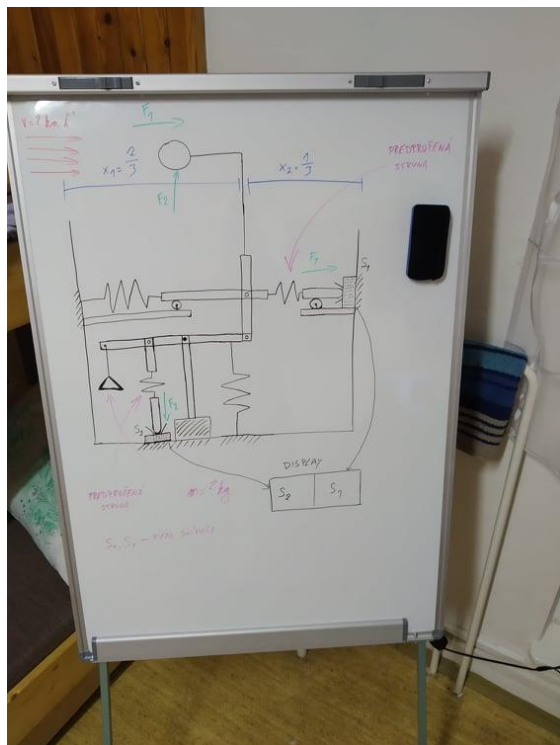 F₁
x₁ = 2/3
x₂ = 1/3
PŘEDPRUŽENÁ
STRUNA
F₂
F₁
S₁
F₂
S₂
DISPLAY
S₂ S₁
PŘEDPRUŽENÁ
STRUNA
m = ? kg